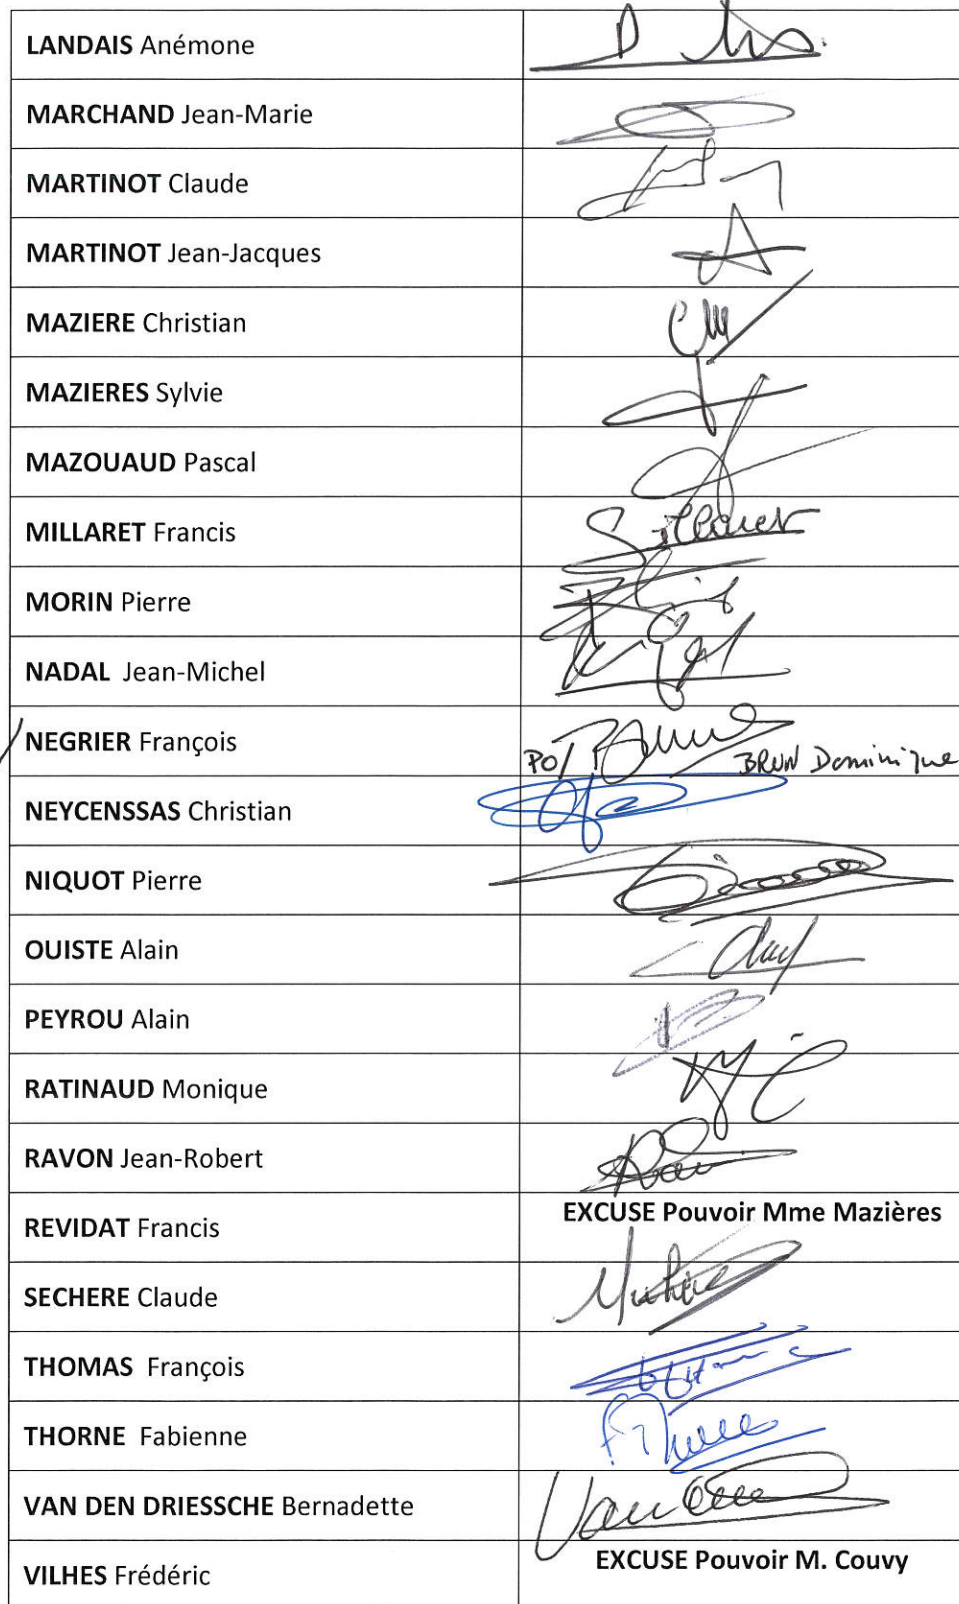 LANDAIS Anémone
MARCHAND Jean-Marie
MARTINOT Claude
MARTINOT Jean-Jacques
MAZIERE Christian
MAZIERES Sylvie
MAZOUAUD Pascal
MILLARET Francis
MORIN Pierre
NADAL Jean-Michel
NEGRIER François PO/ BRUN Dominique
NEYCENSSAS Christian
NIQUOT Pierre
OUISTE Alain
PEYROU Alain
RATINAUD Monique
RAVON Jean-Robert
REVIDAT Francis EXCUSE Pouvoir Mme Mazières
SECHERE Claude
THOMAS François
THORNE Fabienne
VAN DEN DRIESSCHE Bernadette
VILHES Frédéric EXCUSE Pouvoir M. Couvy